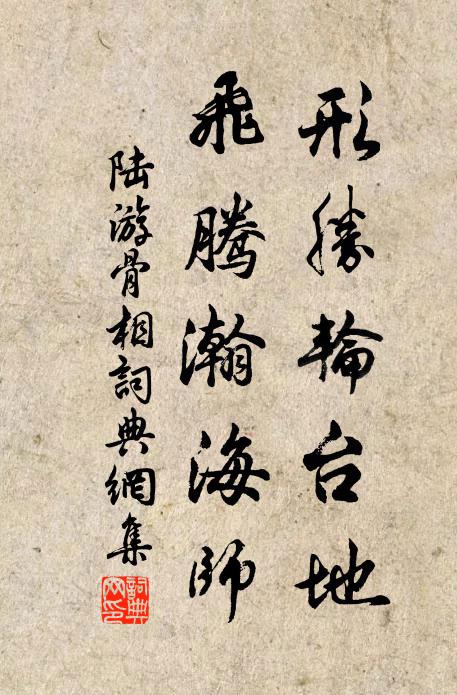 形勝輪台地
飛騰瀚海師
陸游骨相詞典網集
詞典網印